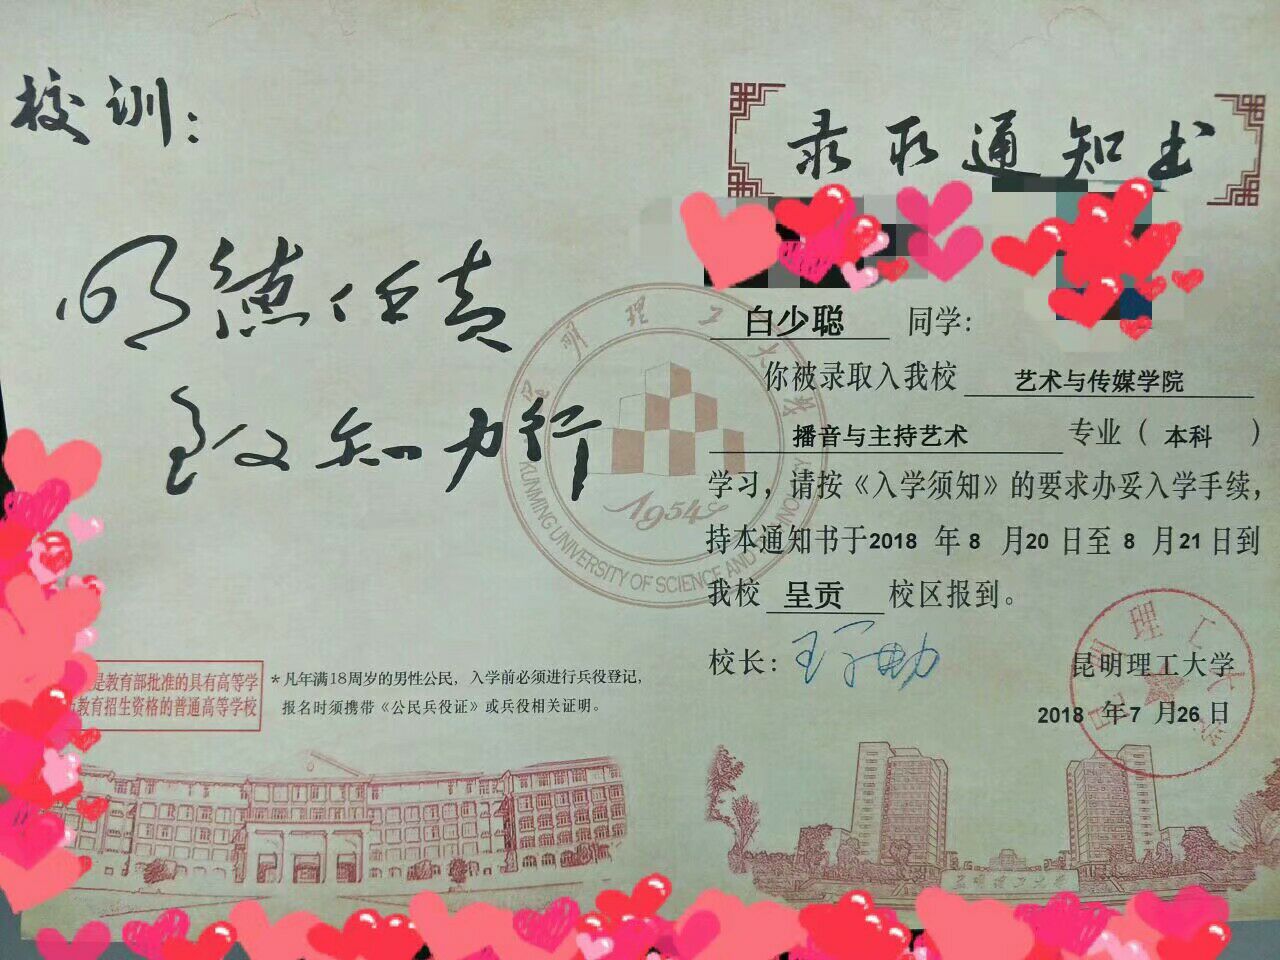 校训：
明德任责
致知力行
录取通知书
白少聪 同学：
你被录取入我校 艺术与传媒学院
播音与主持艺术 专业（本科）
学习，请按《入学须知》的要求办妥入学手续，
持本通知书于2018 年 8 月20 日至 8 月 21 日到
我校 呈贡 校区报到。
校长：
昆明理工大学
2018 年 7 月 26 日
是教育部批准的具有高等学
教育招生资格的普通高等学校
*凡年满18周岁的男性公民，入学前必须进行兵役登记，
报名时须携带《公民兵役证》或兵役相关证明。
昆明理工大学
KUNMING UNIVERSITY OF SCIENCE AND
1954
昆明理工大学
昆明理工大学